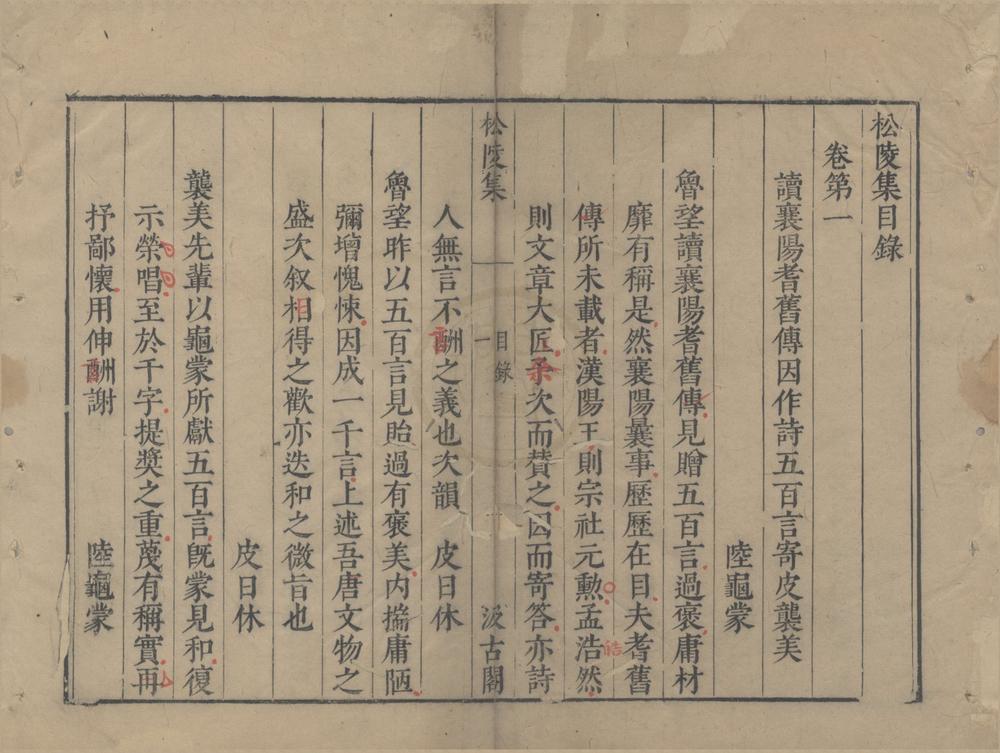 松陵集目錄
卷第一
讀襄陽耆舊傳因作詩五百言寄皮襲美
陸龜蒙
魯望讀襄陽耆舊傳見贈五百言過褒庸材
靡有稱是然襄陽曩事歷歷在目夫耆舊
傳所未載者漢陽王則宗社元勲孟浩然
則文章大匠予次而賛之因而寄答亦詩
松陵集
目錄
一
汲古閣
人無言不酬之義也次韻 皮日休
魯望昨以五百言見貽過有褒美内揣庸陋
彌增愧悚因成一千言上述吾唐文物之
盛次叙相得之歡亦迭和之微旨也
皮日休
襲美先輩以龜蒙所獻五百言旣蒙見和復
示榮唱至於千字提獎之重蔑有稱實再
抒鄙懷用伸酬謝 陸龜蒙